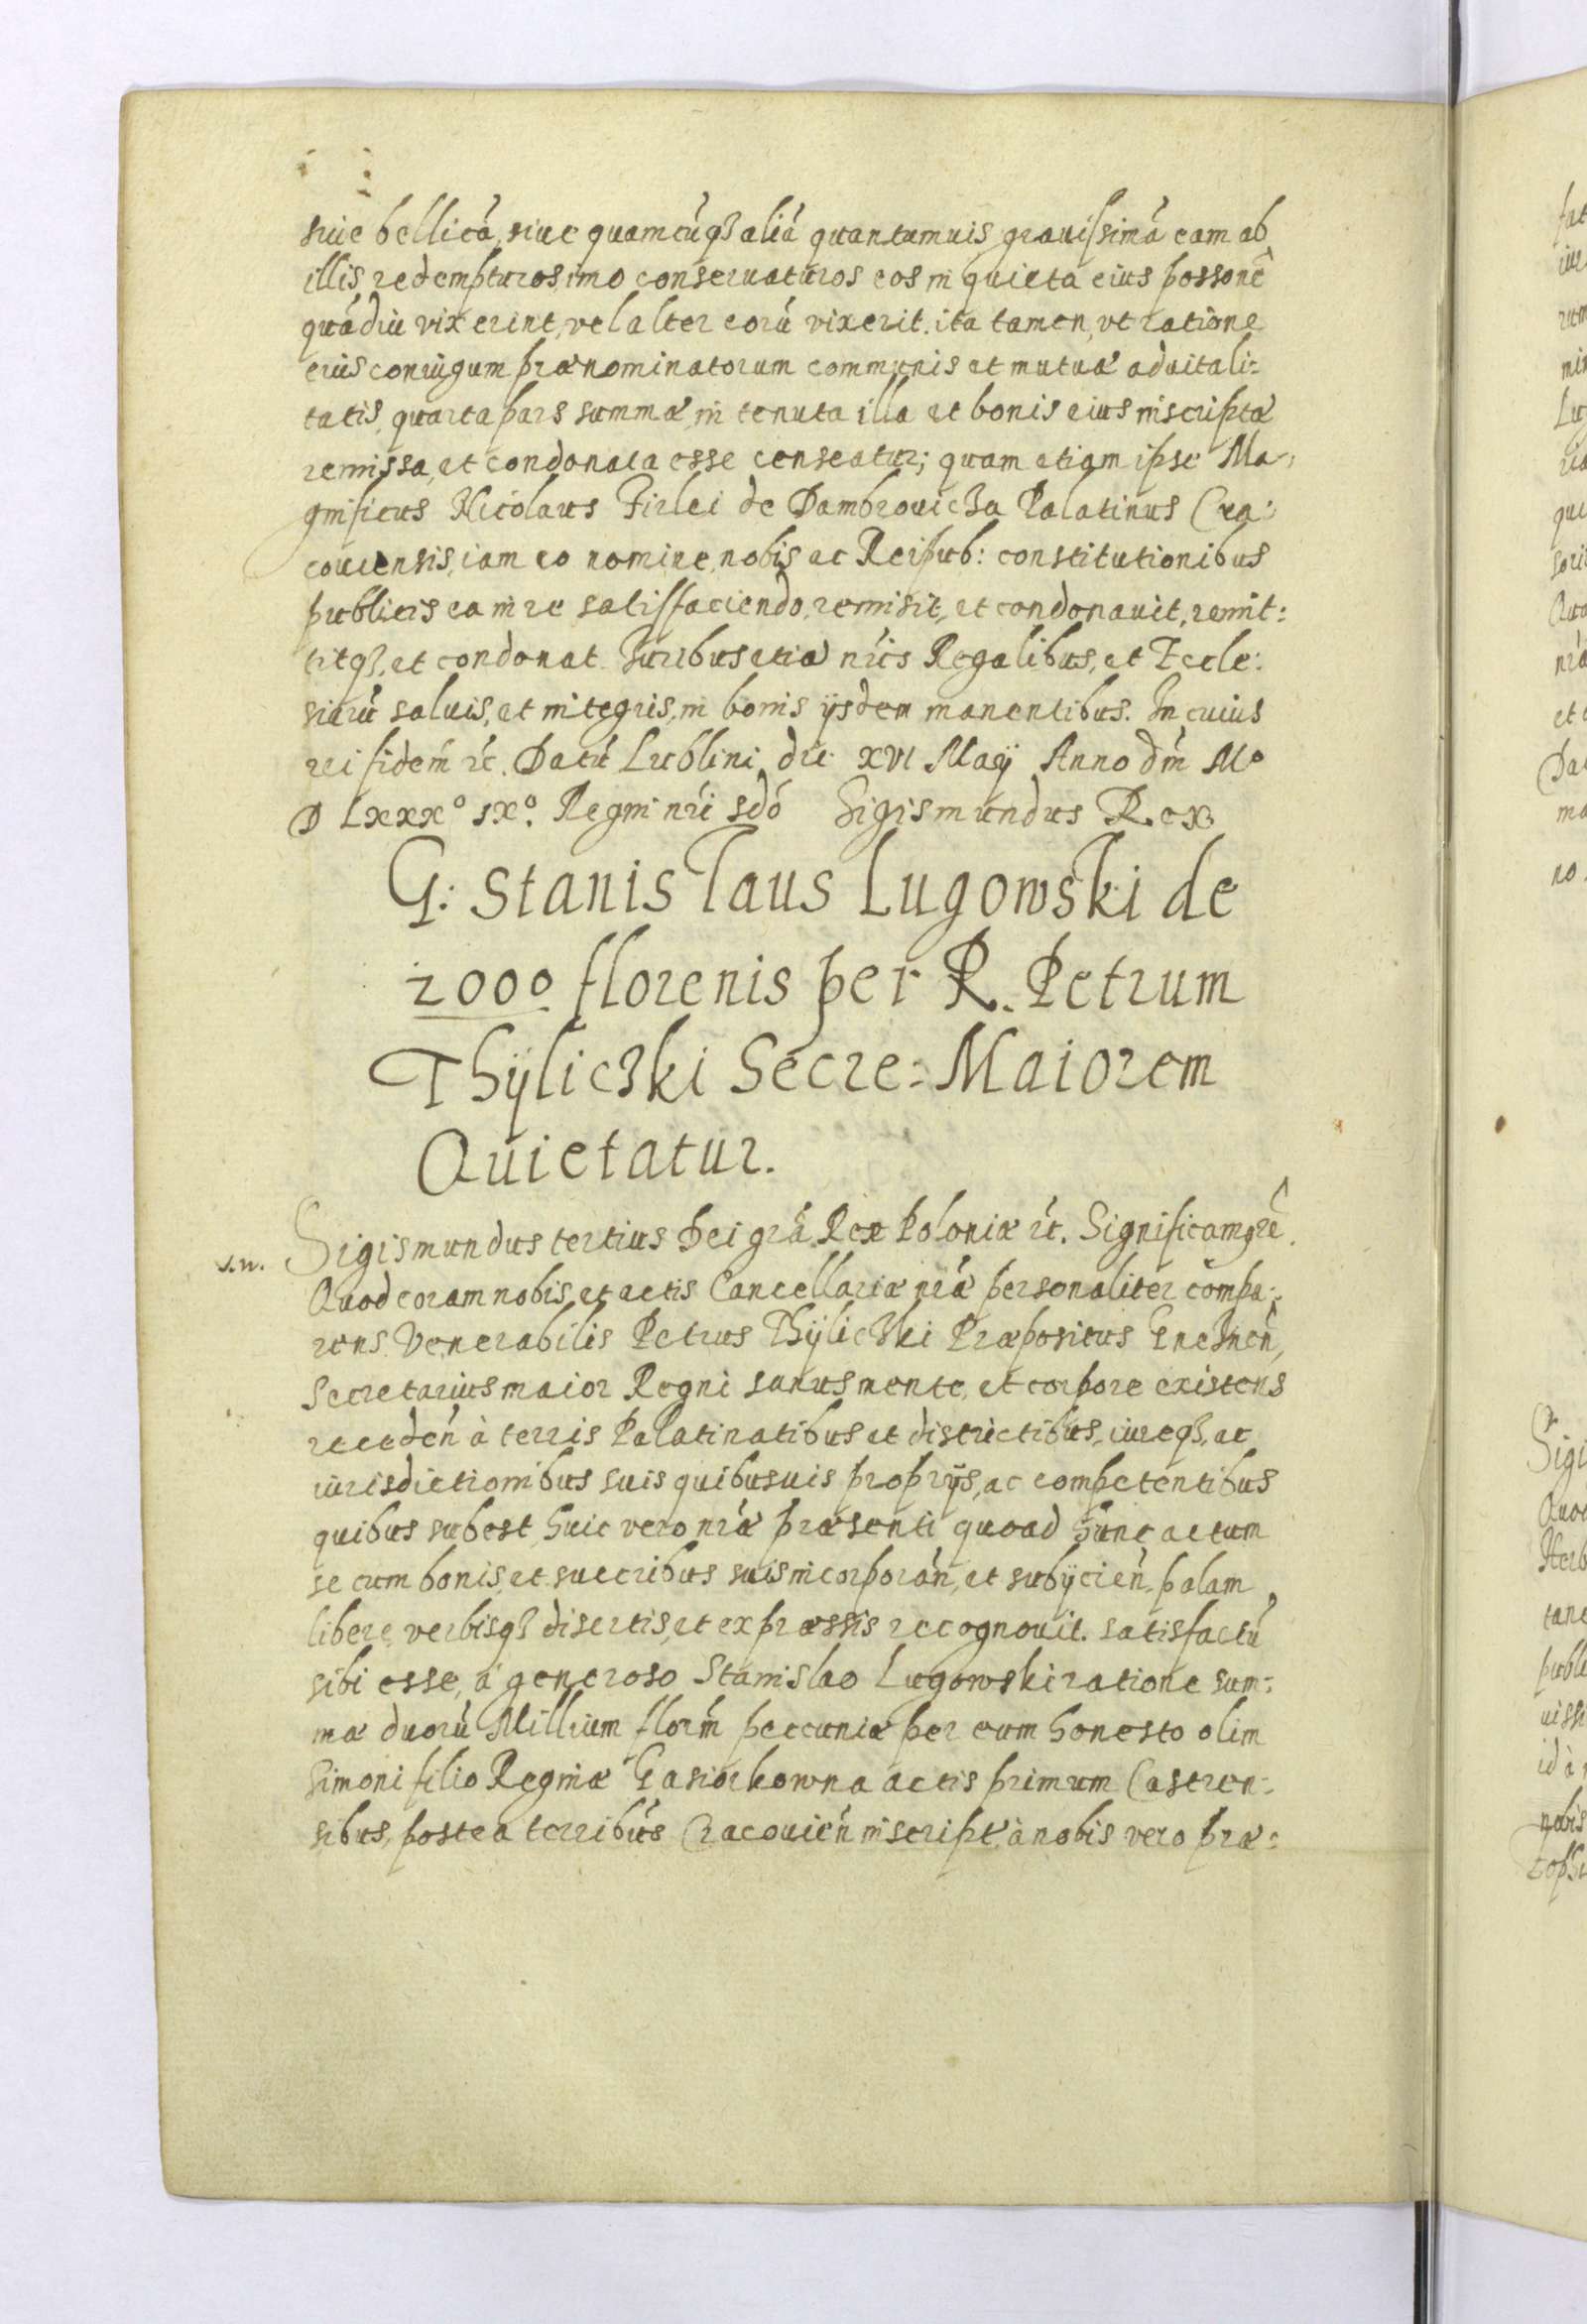 siue bellicá, siue quamcúq₃ aliá quantumuis grauissimá eam ab
illis redempturos, imo conseruaturos eos in quieta eius possone
quádiu vixerint, vel alter eorú vixerit. ita tamen, vt ratione
eius coniugum prænominatorum communis et mutuæ aduitali:
tatis, quarta pars summæ, in tenuta illa et bonis eius inscriptæ
remissa, et condonata esse censeatur; quam etiam ipse Ma:
gnificus Nicolaus Firlei de Dambrouicza Palatinus Cra:
couiensis, iam eo nomine, nobis ac Reipub: constitutionibus
publicis ea in re satisfaciendo, remisit, et condonauit, remit:
titq₃, et condonat. Iuribus etiã nris Regalibus, et Eccle:
siarú saluis, et integris, in bonis ijsdem manentibus. In cuius
rei fidem rc̃. Datú Lublini die XVI Maij Anno dm̃ Mº
D Lxxxº ixº. Regni nri sdó Sigismundus Rex
G: Stanislaus Lugowski de
2000 florenis per R. Petrum
Thÿliczki Secre: Maiorem
Quietatur.
Sigismundus tertius Dei grã Rex Poloniæ rc̃. Significamg rẽ.
s.n.
Quod coram nobis, et actis Cancellariæ nræ personaliter compa:
rens Venerabilis Petrus Thÿliczki Præpositus Gneznen̂,
Secretarius maior Regni sanus mente, et corpore existens
receden̂ à terris Palatinatibus et districtibus, iureq₃, ac
iurisdictionibus suis quibusuis proprijs, ac competentibus
quibus subest, huic vero nræ præsenti quoad hunc actum
se cum bonis, et succribus suis incorporan̂, et subijcien̂, palam
libere, verbisq₃ disertis, et expræssis recognouit. satisfactú
sibi esse, à generoso Stanislao Lugowski ratione sum:
mæ duorú Millium florm̃ peccuniæ per eum honesto olim
Simoni filio Reginæ Gasiorkowna actis primum Castren:
sibus, postea terribús Cracouien̂ inscript, à nobis vero præ: